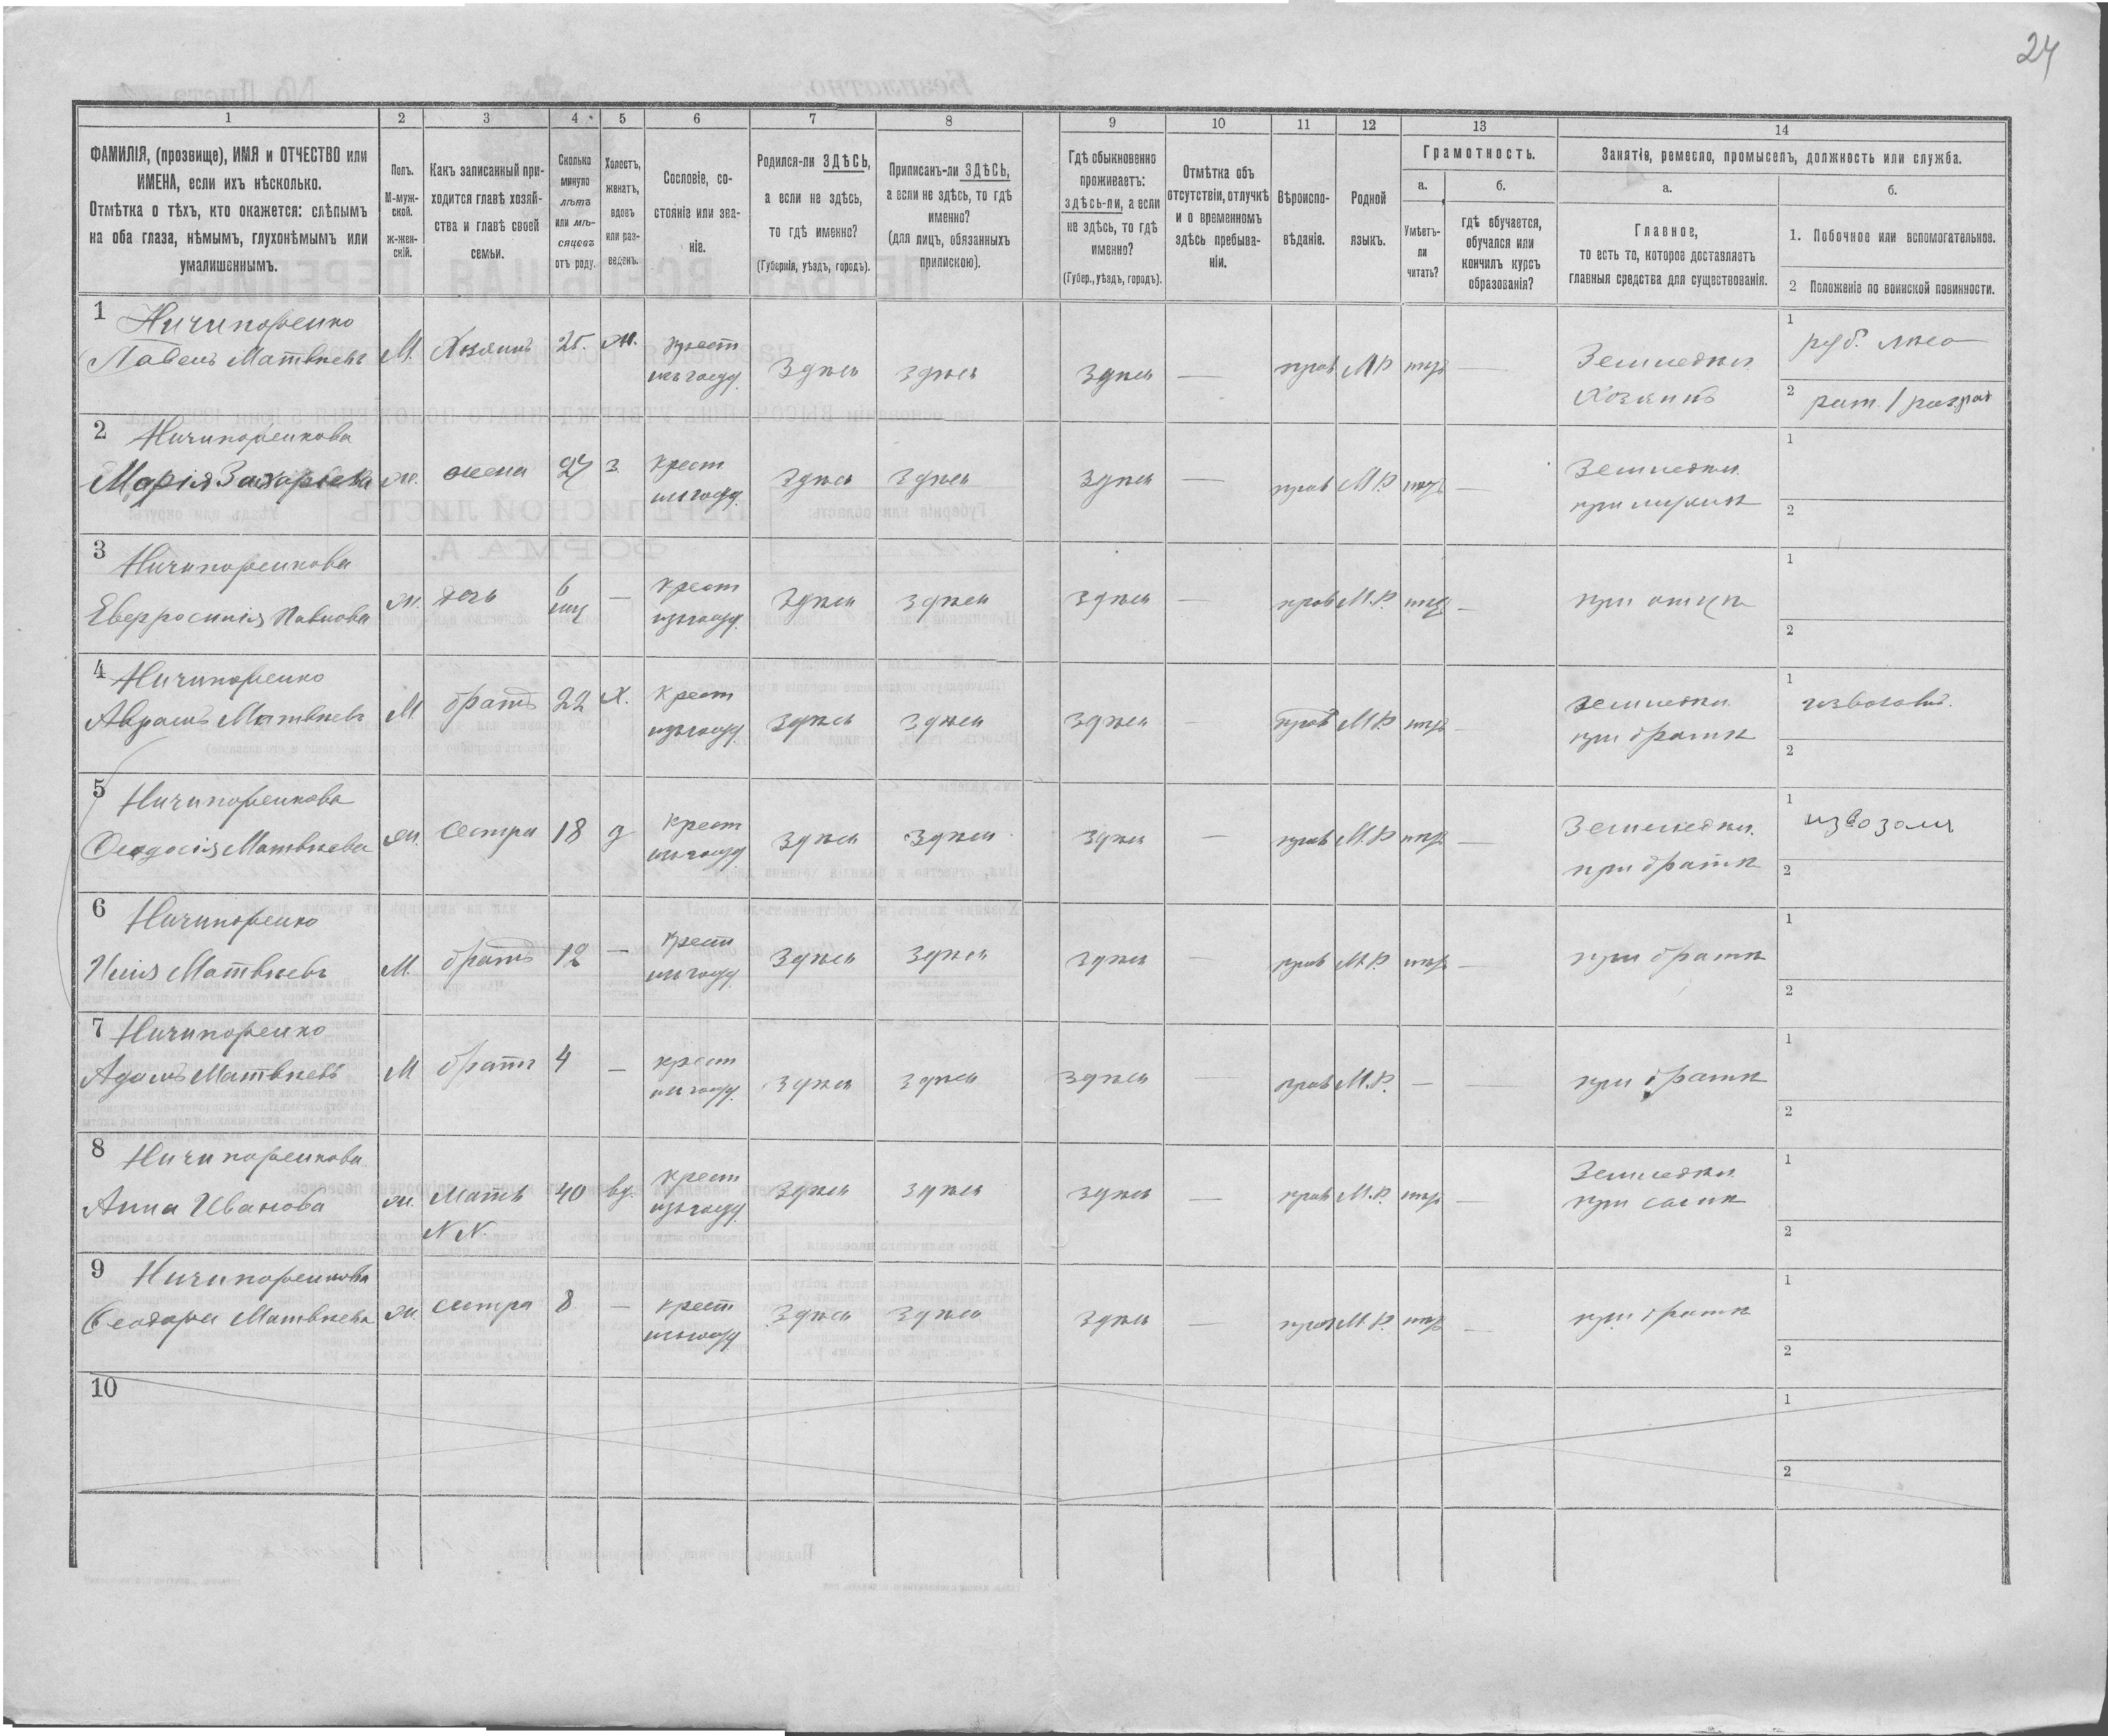 24
1
2
3
4
5
6
7
8
9
10
11
12
13
14
ФАМИЛІЯ, (прозвище), ИМЯ и ОТЧЕСТВО или
ИМЕНА, если ихъ нѣсколько.
Отмѣтка о тѣхъ, кто окажется: слѣпымъ
на оба глаза, нѣмымъ, глухонѣмымъ или
умалишеннымъ.
Полъ.
М-муж-
ской.
ж-жен-
скій.
Какъ записанный при-
ходится главѣ хозяй-
ства и главѣ своей
семьи.
Сколько
минуло
лѣтъ
или мѣ-
сяцевъ
отъ роду.
Холостъ,
женатъ,
вдовъ
или раз-
веденъ.
Сословіе, со-
стояніе или зва-
ніе.
Родился-ли ЗДѢСЬ,
а если не здѣсь,
то гдѣ именно?
(Губернія, уѣздъ, городъ).
Приписанъ-ли ЗДѢСЬ,
а если не здѣсь, то гдѣ
именно?
(для лицъ, обязанныхъ
припискою).
Гдѣ обыкновенно
проживаетъ:
здѣсь-ли, а если
не здѣсь, то гдѣ
именно?
(Губер., уѣздъ, городъ).
Отмѣтка объ
отсутствіи, отлучкѣ
и о временномъ
здѣсь пребыва-
ніи.
Вѣроиспо-
вѣданіе.
Родной
языкъ.
Грамотность.
а.
Умѣетъ-
ли
читать?
б.
гдѣ обучается,
обучался или
кончилъ курсъ
образованія?
Занятіе, ремесло, промыселъ, должность или служба.
а.
Главное,
то есть то, которое доставляетъ
главныя средства для существованія.
б.
1. Побочное или вспомогательное.
2 Положеніе по воинской повинности.
1 Ничипоренко
Павелъ Матвѣевъ М. Хозяинъ 25. ж. крест здѣсь здѣсь здѣсь — прав М Р —
Земледѣл. Хозяинъ
1 руб. лѣса
2 рат. 1 разряд
2 Ничипоренкова
Марія Захарьева ж. жена 27 з. крест здѣсь здѣсь здѣсь — прав М.Р. —
Земледѣл. при мужѣ
1
2
3 Ничипоренкова
Евфросинія Павлова ж. дочь 6 мц — крест здѣсь здѣсь здѣсь — прав М.Р. —
при отцѣ
1
2
4 Ничипоренко
Аврамъ Матвѣевъ М братъ 22 х. крест здѣсь здѣсь здѣсь — прав М.Р. —
земледѣл. при братѣ
1
2
5 Ничипоренкова
Ѳеодосія Матвѣева ж. сестра 18 д крест здѣсь здѣсь здѣсь — прав М.Р —
Земледѣл. при братѣ
1 извозом
2
6 Ничипоренко
Матвѣевъ М. братъ 12 — крест здѣсь здѣсь здѣсь — прав М.Р. —
при братѣ
1
2
7 Ничипоренко
Адамъ Матвѣевъ М братъ 4 — крест здѣсь здѣсь здѣсь — прав М.Р. — —
при братѣ
1
2
8 Ничипоренкова
Анна Иванова ж. мать 40 вд. крест здѣсь здѣсь здѣсь — прав М.Р. —
N N.
Земледѣл. при сынѣ
1
2
9 Ничипоренкова
Ѳеодора Матвѣева ж. сестра 8 — крест здѣсь здѣсь здѣсь — прав М.Р. —
при братѣ
1
2
10
1
2